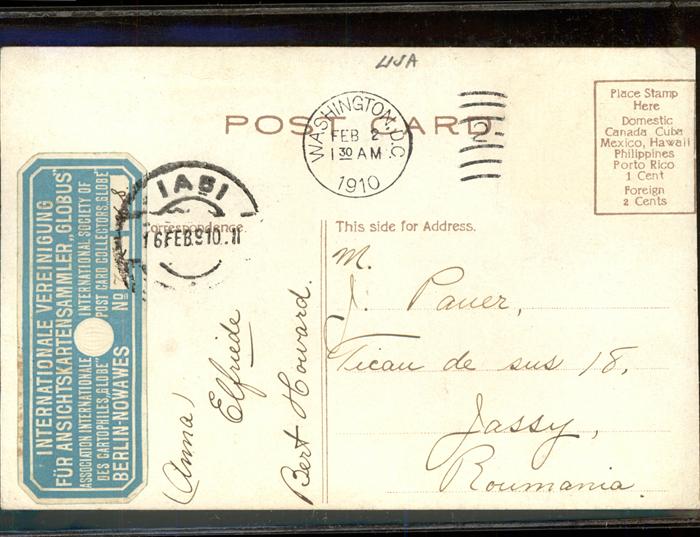 USA
POST CARD
WASHINGTON, D.C.
FEB 2
1 30 AM
1910
2
Place Stamp
Here
Domestic
Canada Cuba
Mexico, Hawaii
Philippines
Porto Rico
1 Cent
Foreign
2 Cents
INTERNATIONALE VEREINIGUNG
FÜR ANSICHTSKARTENSAMMLER „GLOBUS"
ASSOCIATION INTERNATIONALE
DES CARTOPHILES „GLOBE"
INTERNATIONAL SOCIETY OF
POST CARD COLLECTORS „GLOBE"
BERLIN-NOWAWES
No
IAŞI
16 FEB. 910
Correspondence.
(Anna)
Elfriede
Bert Howard.
This side for Address.
M.
J. Pauer,
Ticau de sus 18,
Jassy,
Roumania.